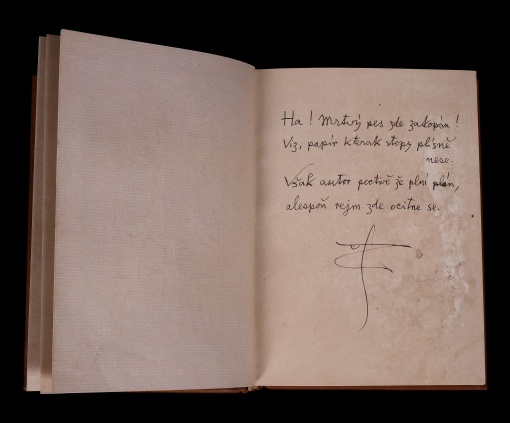 Ha! Mrtvý pes zde zakopán!
Viz, papír kterak stopy plísně
nese.
Však autor poctivě že plní plán,
alespoň rejm zde ocitne se.